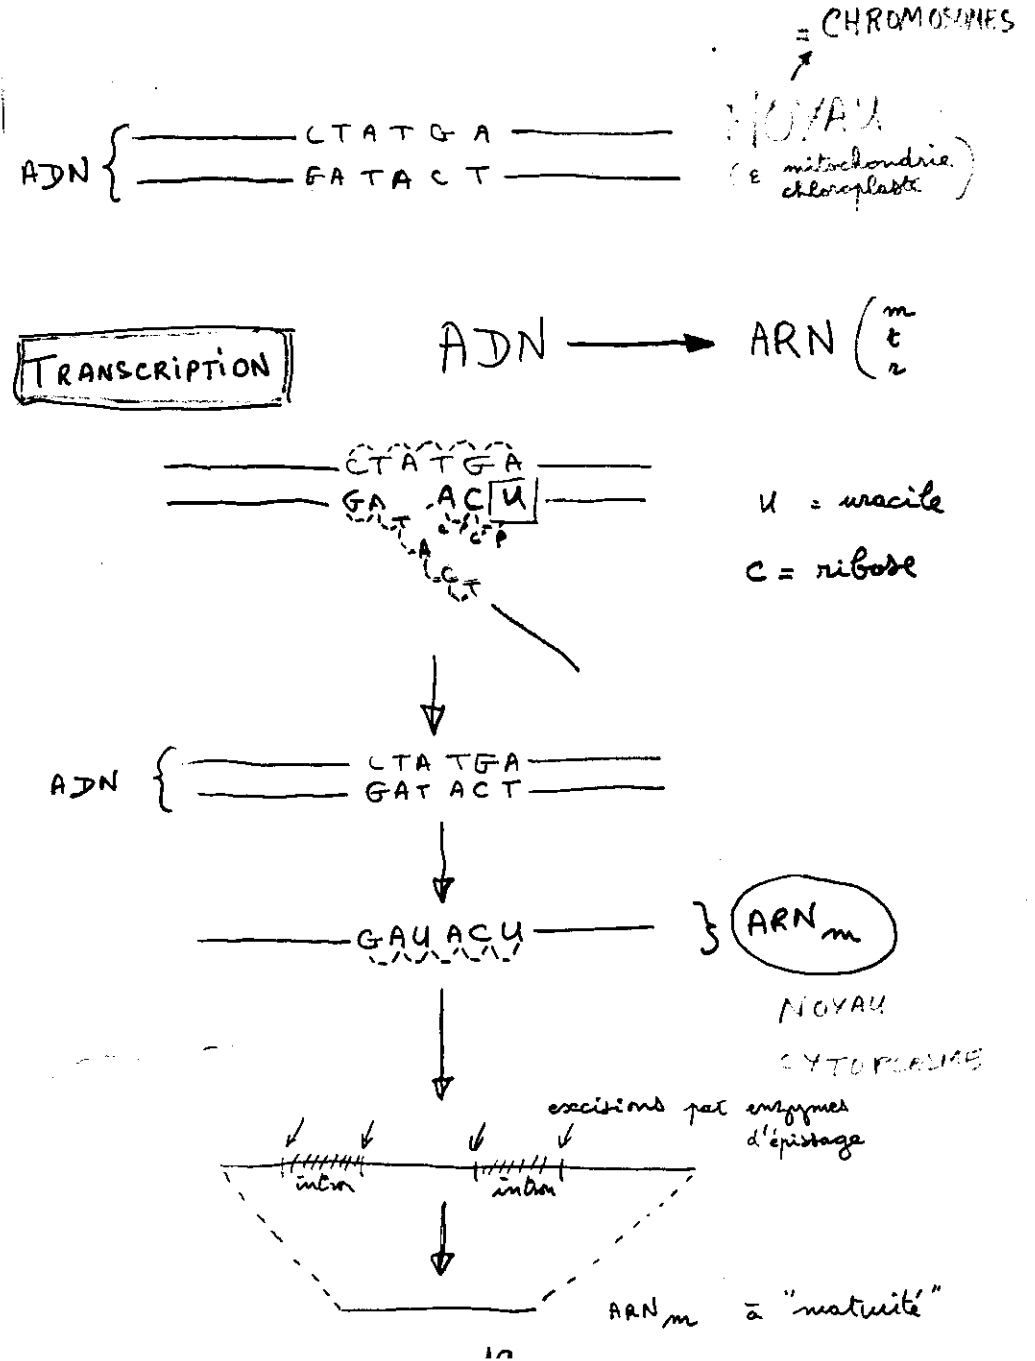 = CHROMOSOMES
NOYAU
ADN { CTATGA
GATACT
(ε mitochondrie
chloroplaste)
TRANSCRIPTION
ADN → ARN ( m
t
r
CTATGA
GA ACU
T
c-p
c-p
A
C
T
U = uracile
C = ribose
ADN { CTA TGA
GAT ACT
GAU ACU } ARNm
NOYAU
CYTOPLASME
excisions par enzymes
d'épissage
intron intron
ARNm à "maturité"